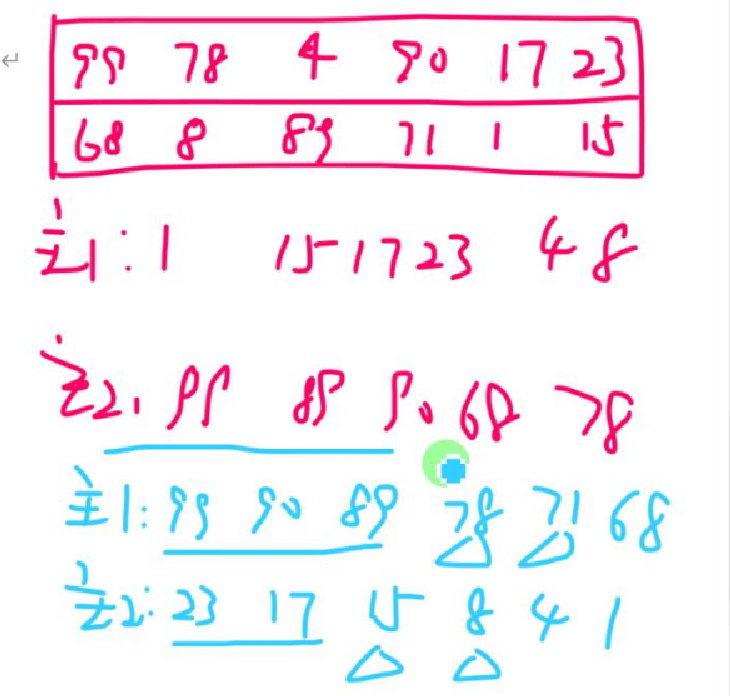 99 78 4 90 17 23
68 8 89 71 1 15
主1: 1 15 17 23 4 8
主2: 99 89 90 68 78
主1: 99 90 89 78 71 68
主2: 23 17 15 8 4 1